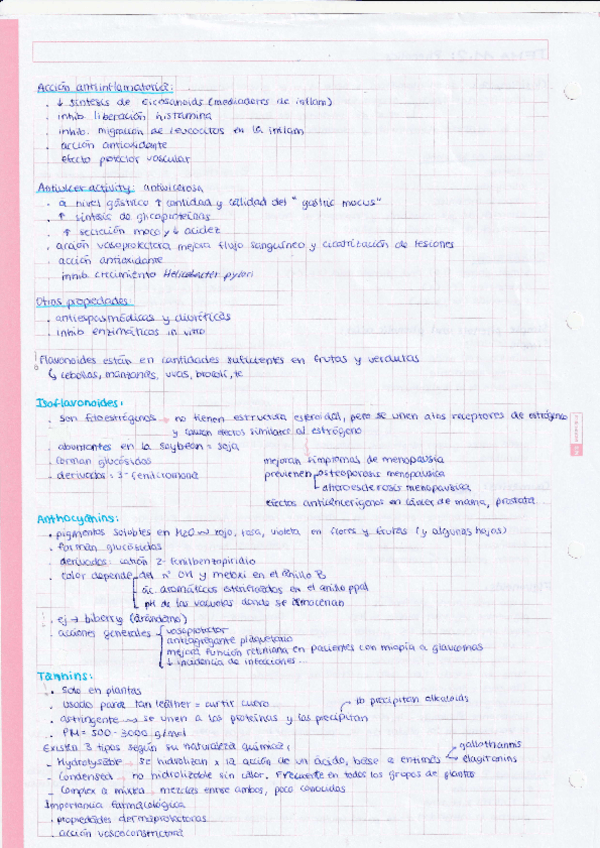 Acción antiinflamatoria:
. ↓ síntesis de eicosanoids (mediadores de inflam)
. inhib liberación histamina
. inhib. migración de leucocitos en la inflam
. acción antioxidante
efecto protector vascular
Antiulcer activity: antiulcerosa
. a nivel gástrico ↑ cantidad y calidad del "gastric mocus"
. ↑ síntesis de glicoproteínas
. ↑ secreción moco y ↓ acidez
. acción vasoprotectora mejora flujo sanguíneo y cicatrización de lesiones
. acción antioxidante
inhib crecimiento Helicobacter pylori
Otras propiedades:
. antiespasmódicas y diuréticas
. inhib enzimáticos in vitro
Flavonoides están en cantidades suficientes en frutas y verduras
↳ cebollas, manzanas, uvas, brocoli, te
Isoflavonoides:
. son fitoestrógenos → no tienen estructura esteroidal, pero se unen a los receptores de estrógeno
y causan efectos similares al estrógeno
. abundantes en la soybean = soja
. forman glucósidos
mejoran símpromas de menopausia
. derivados: 3-fenilcromona
previenen osteoporosis menopáusica
ateroesclerosis menopáusica
efectos anticancerígenos en cáncer de mama, prostata
Anthocyanins:
. pigmentos solubles en H2O ~ rojo, rosa, violeta en flores y frutas (y algunas hojas)
. forman glucósidos
. derivados: catión 2-fenilbenzopirilio
. color depende del nº OH y metoxi en el anillo B
ác. aromáticos esterificados en el anillo ppal
pH de las vacuolas donde se almacenan
. ej → bilberry (arándano)
. acciones generales vasoprotector
antiagregante plaquetario
mejora función retiniana en pacientes con miopía o glaucomas
↓ incidencia de infecciones
Tannins:
. Solo en plantas
. usado para tan leather = curtir cuero
→ tb precipitan alkaloids
. astringente → se unen a las proteínas y las precipitan
. PM = 500-3000 g/mol
Existen 3 tipos según su naturaleza química:
gallothannins
- Hydrolysable → se hidrolizan x la acción de un ácido, base o enzimas
ellagitannins
- Condensed → no hidrolizable sin calor. Frecuente en todos los grupos de plantas
- Complex o mixta → mezclas entre ambos, poco conocidas
Importancia farmacológica
. propiedades dermoprotectoras
- acción vasoconstrictora